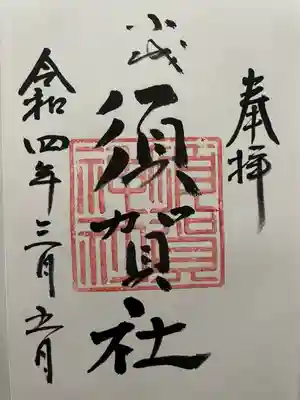 奉拝
小城
須賀社
須賀
神社
令和四年三月五日